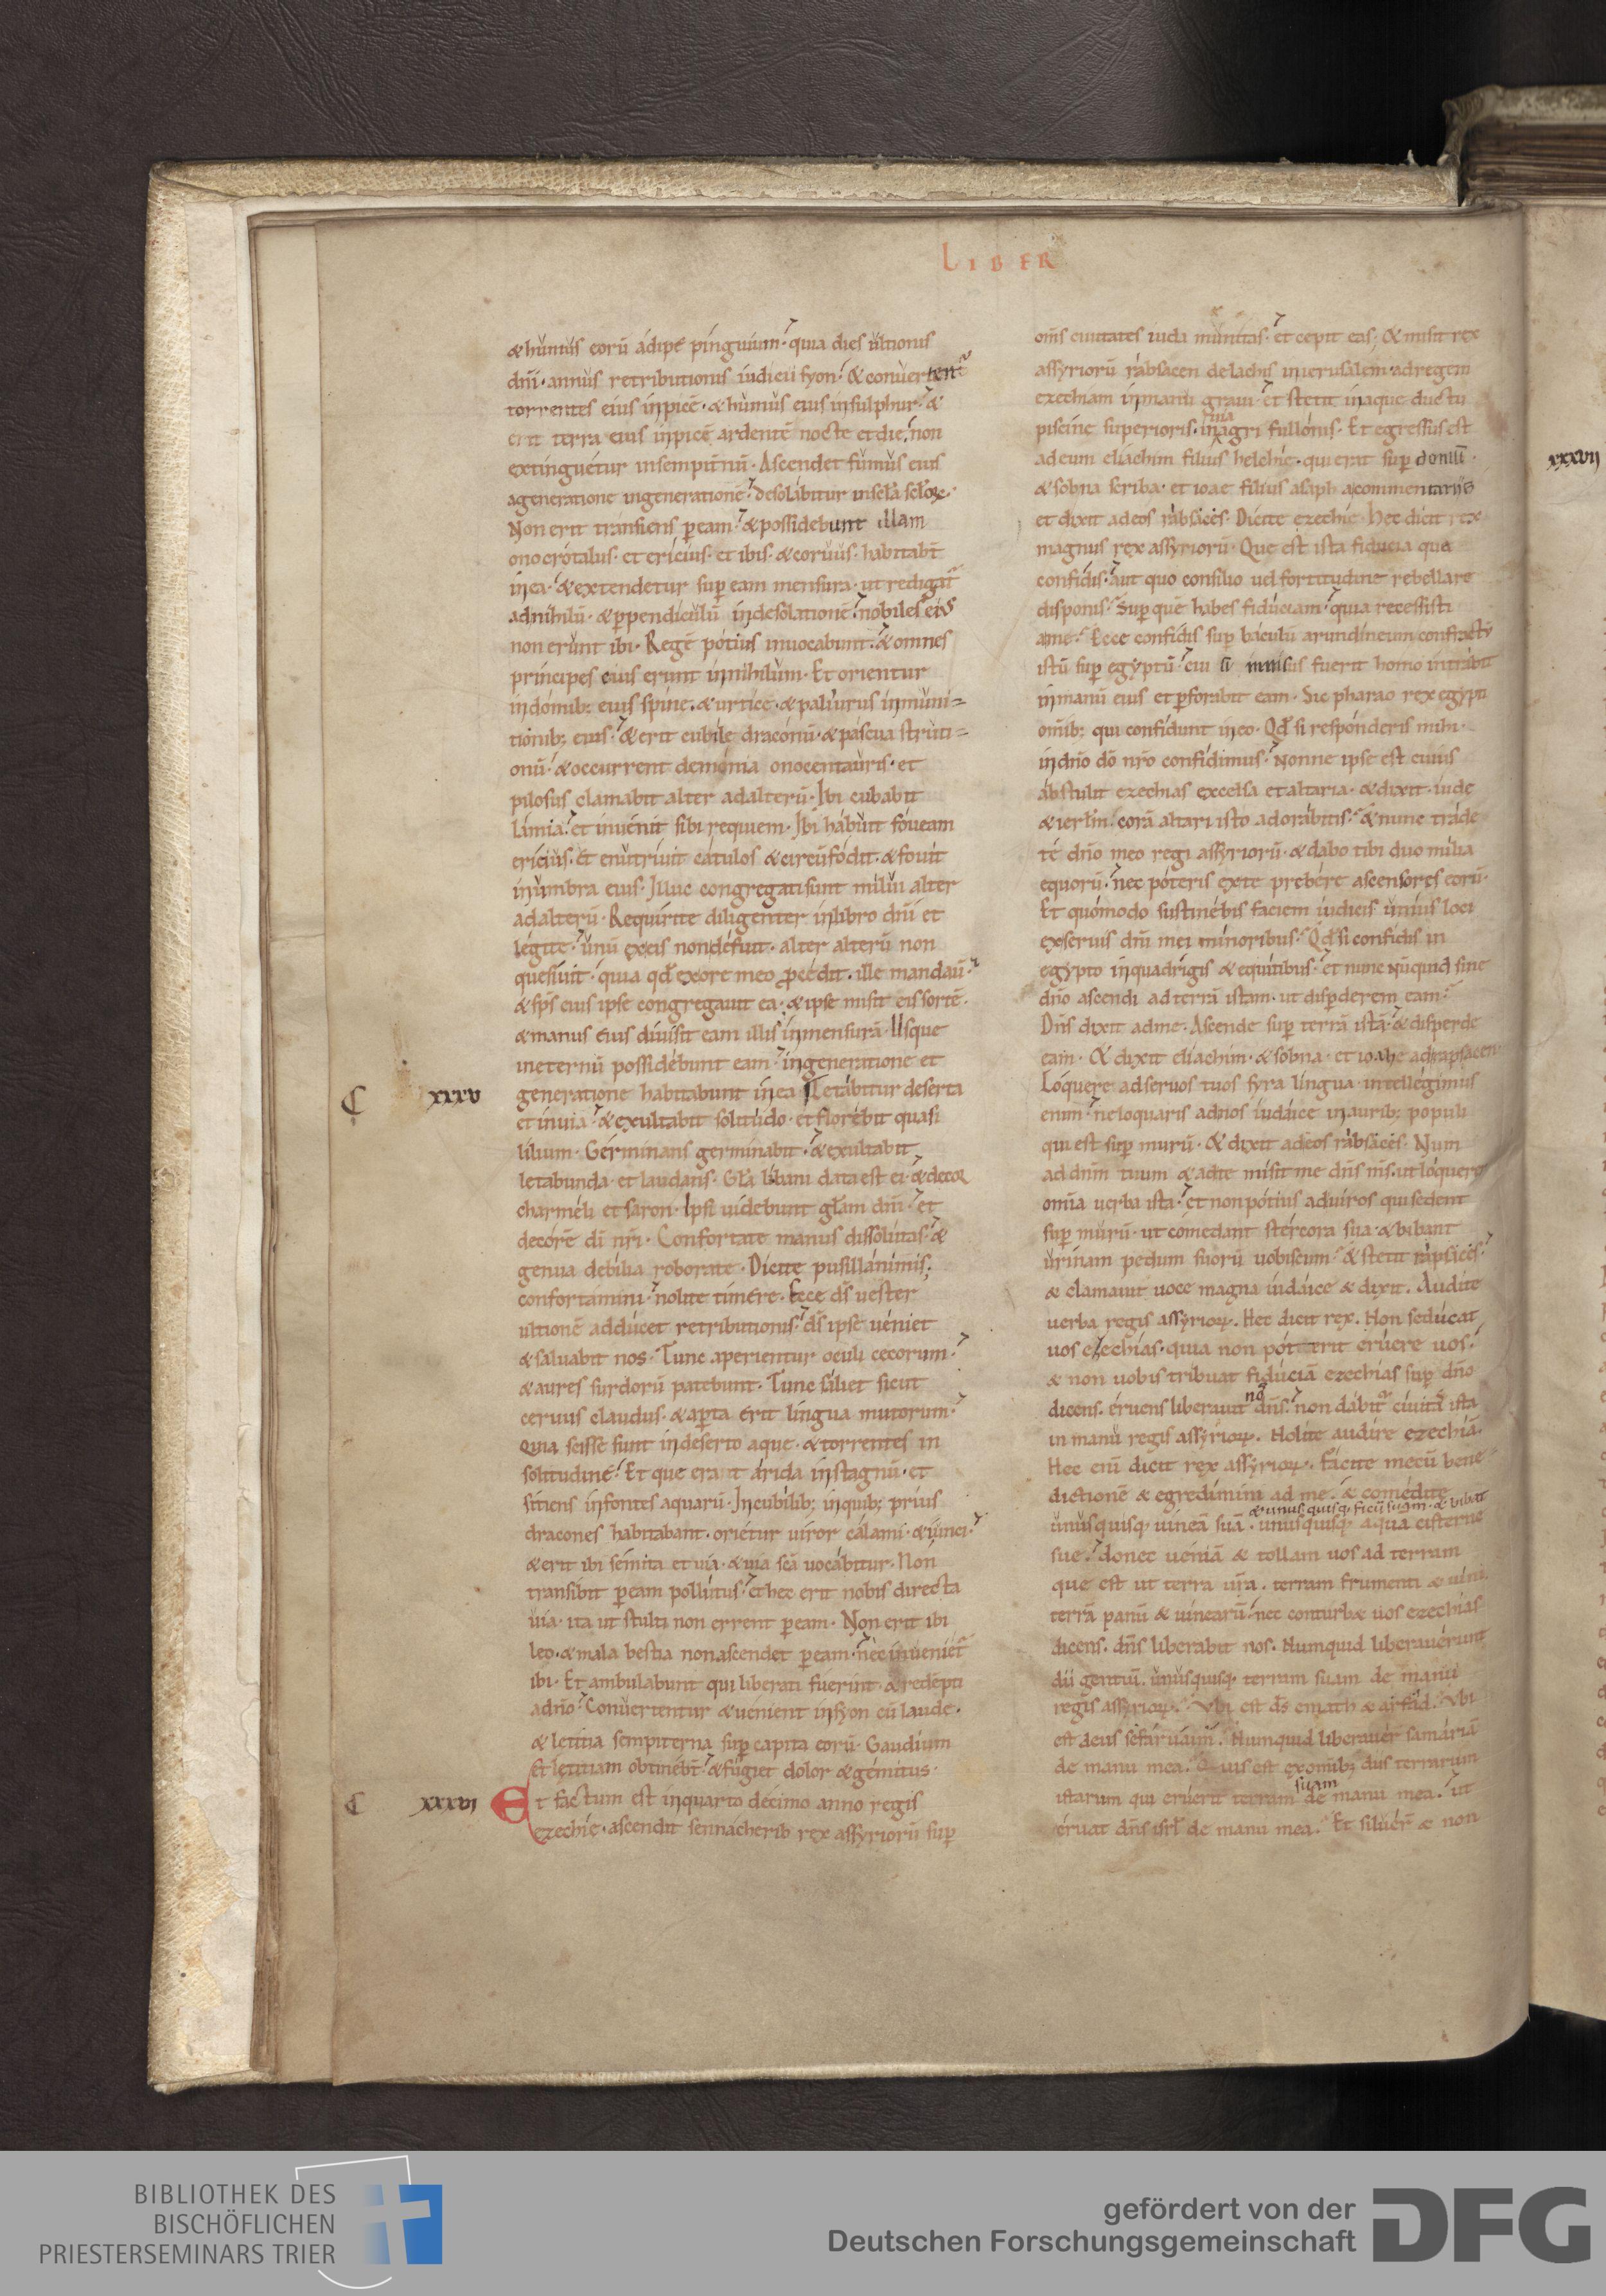 LIBER
& humus eorū adipe pinguium. quia dies ultionis
dn̄i. annus retributionis iudicii syon. & conuertent᷑
torrentes eius in picē. & humus eius in sulphur. &
erit terra eius in picē ardentē nocte et die. non
extinguetur in sempit̄nū. Ascendet fumus eius
a generatione in generationē. desolabitur in sc̄la sc̄loꝝ.
Non erit transiens p̄ eam. & possidebunt illam
onocrotalus. et ericius. et ibis. & coruus. habitabt̄
in ea. & extendetur sup̄ eam mensura. ut redigat᷑
ad nihilū. & p̄pendiculū in desolationē. nobiles ei᷒
non erunt ibi. Regē potius inuocabunt. & omnes
principes eius erunt in nihilum. Et orientur
in domib; eius spine. & urtice. & paliurus in muni=
tionib; eius. & erit cubile draconū. & pascua struti=
onū. & occurrent demonia onocentauris. et
pilosus clamabit alter ad alterū. Ibi cubabit
lamia. et inuenit sibi requiem. Ibi habuit foueam
ericius. et enutriuit catulos & circūfodit. & fouit
in umbra eius. Illuc congregati sunt milui alter
ad alterū. Requirite diligenter in libro dn̄i et
legite. unū ex eis non defuit. alter alterū non
quesiuit. quia qd̄ ex ore meo procedit. ille mandau᷑.
& sp̄s eius ipse congregauit ea. & ipse misit eis sortē.
& manus eius diuisit eam illis in mensurā. Usque
in eternū possidebunt eam. in generatione et
C xxxv generatione habitabunt in ea Letabitur deserta
et inuia. & exultabit solitudo. et florebit quasi
lilium. Germinans germinabit. & exultabit
letabunda. et laudans. Gl̄a libani data est ei. & decor
charmeli et saron. Ipsi uidebunt gl̄am dn̄i. et
decorē dī nr̄i. Confortate manus dissolutas. &
genua debilia roborate. Dicite pusillanimis;
confortamini. nolite timere. Ecce ds̄ uester
ultionē adducet retributionis. ds̄ ipse ueniet
& saluabit nos. Tunc aperientur oculi cecorum.
& aures surdorū patebunt. Tunc saliet sicut
ceruus claudus. & ap̄ta erit lingua mutorum.
Quia scisse sunt in deserto aque. & torrentes in
solitudine. Et que erat arida in stagnū. et
sitiens in fontes aquarū. In cubilib; in quib; prius
dracones habitabant. orietur uiror calami. & iunci.
& erit ibi semita et uia. & uia sc̄a uocabitur. Non
transibit p̄ eam pollutus. et hec erit nobis directa
uia. ita ut stulti non errent p̄ eam. Non erit ibi
leo. & mala bestia non ascendet p̄ eam. nec inueniet᷑
ibi. Et ambulabunt qui liberati fuerint. & redēpti
a dn̄o. Conuertentur & uenient in syon cū laude.
& letitia sempiterna sup̄ capita eorū. Gaudium
et lętitiam obtinebt̄. & fugiet dolor & gemitus.
C xxxvi Et factum est in quarto decimo anno regis
ezechie. ascendit sennacherib rex assyriorū sup̄
om̄s ciuitates iuda munitas. et cepit eas. & misit rex
assyriorū rabsacen de lachis in ierusalem. ad regem
ezechiam in manu graui. et stetit in aque ductu
piscine superioris. in uia agri fullonis. Et egressus est
ad eum eliachim filius helchie. qui erat sup̄ domū.
& sobna scriba. et ioae filius asaph a commentariis
et dixit ad eos rabsaces. Dicite ezechie. Hec dicit rex
magnus rex assyriorū. Que est ista fiducia qua
confidis. aut quo consilio uel fortitudine rebellare
disponis. Sup̄ quē habes fiduciam. quia recessisti
a me. Ecce confidis sup̄ baculū arundineum confractū
istū sup̄ egyptū. cui si innisus fuerit homo intrabit
in manū eius et p̄forabit eam. Sic pharao rex egypti
om̄ib; qui confidunt in eo. Qd̄ si responderis mihi.
in dn̄o dō nr̄o confidimus. Nonne ipse est cuius
abstulit ezechias excelsa et altaria. & dixit. iude
& ierl̄m. corā altari isto adorabitis. & nunc trade
te dn̄o meo regi assyriorū. & dabo tibi duo milia
equorū. nec poteris ex te prebere ascensores eorū.
Et quomodo sustinebis faciem iudicis unius loci
ex seruis dn̄i mei minoribus. Qd̄ si confidis in
egypto in quadrigis & equitibus. et nunc nūquid sine
dn̄o ascendi ad terrā istam. ut disp̄derem eam.
Dn̄s dixit ad me. Ascende sup̄ terrā istā. & disperde
eam. & dixit eliachim. & sobna. et ioahe ad rapsacen
Loquere ad seruos tuos syra lingua. intellegimus
enim. ne loquaris ad nos iudaice in aurib; populi
qui est sup̄ murū. & dixit ad eos rabsaces. Num
ad dn̄m tuum & ad te misit me dn̄s ms̄. ut loquerer
omīa uerba ista. et non potius ad uiros qui sedent
sup̄ murū. ut comedant stercora sua & bibant
urinam pedum suorū uobiscum. & stetit rapsaces.
& clamauit uoce magna iudaice & dixit. Audite
uerba regis assyrioꝝ. Hec dicit rex. Non seducat
uos ezechias. quia non poterit eruere uos.
& non uobis tribuat fiduciā ezechias sup̄ dn̄o
dicens. eruens liberauit nos dn̄s. non dabit᷑ ciuitas ista
in manu regis assyrioꝝ. Nolite audire ezechiā.
Hec enī dicit rex assyrioꝝ. facite mecū bene=
dictionē & egredimini ad me. & comedite
unusquisq; uineā suā. & unusquisq; ficū suam. & bibat unusquisq; aquā cisterne
sue. donec ueniā & tollam uos ad terram
que est ut terra ur̄a. terram frumenti & uini.
terrā panū & uinearū. nec conturbet uos ezechias
dicens. dn̄s liberabit nos. Numquid liberauerunt
dii gentiū. unusquisq; terram suam de manu
regis assyrioꝝ. Vbi est ds̄ emath & arfad. Vbi
est deus sefaruaim. Numquid liberauer̄ samariā
de manu mea. Quis est ex om̄ib; diis terrarum
istarum qui eruerit terram suam de manu mea. ut
eruat dn̄s isrl̄ de manu mea. Et siluer̄ & non
xxxvii
BIBLIOTHEK DES
BISCHÖFLICHEN
PRIESTERSEMINARS TRIER
gefördert von der
Deutschen Forschungsgemeinschaft
DFG